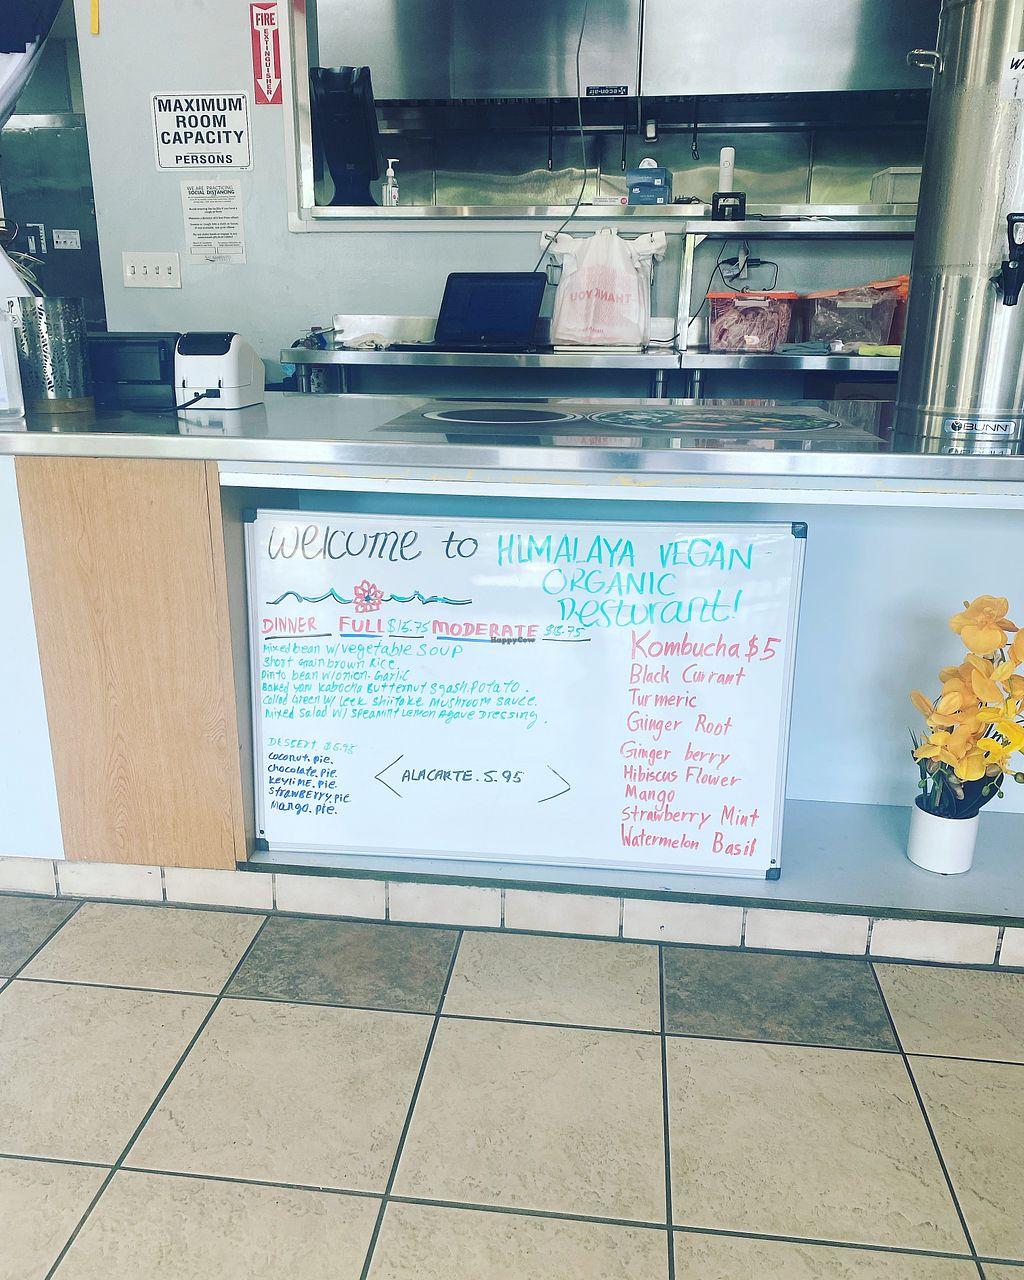 FIRE
EXTINGUISHER
MAXIMUM
ROOM
CAPACITY
PERSONS
WE ARE PRACTICING
SOCIAL DISTANCING
econ-air
THANK YOU
BUNN
Welcome to HIMALAYA VEGAN
ORGANIC
Resturant!
DINNER FULL $15.75 MODERATE $13.75
HappyCow
Mixed bean w/vegetable SOUP
Short Grain brown Rice.
Pinto bean w/onion. Garlic
Baked yam kabocha Butternut sqash. Potato.
Collad Green w/ Leek Shiitake Mushroom Sauce.
Mixed Salad w/ Spearmint Lemon Agave Dressing.
DESSERT $6.95
coconut. pie.
chocolate. pie.
Keylime. pie.
Strawberry. pie
Mango. pie.
ALACARTE. 5.95
Kombucha $5
Black Currant
Turmeric
Ginger Root
Ginger berry
Hibiscus Flower
Mango
Strawberry Mint
Watermelon Basil